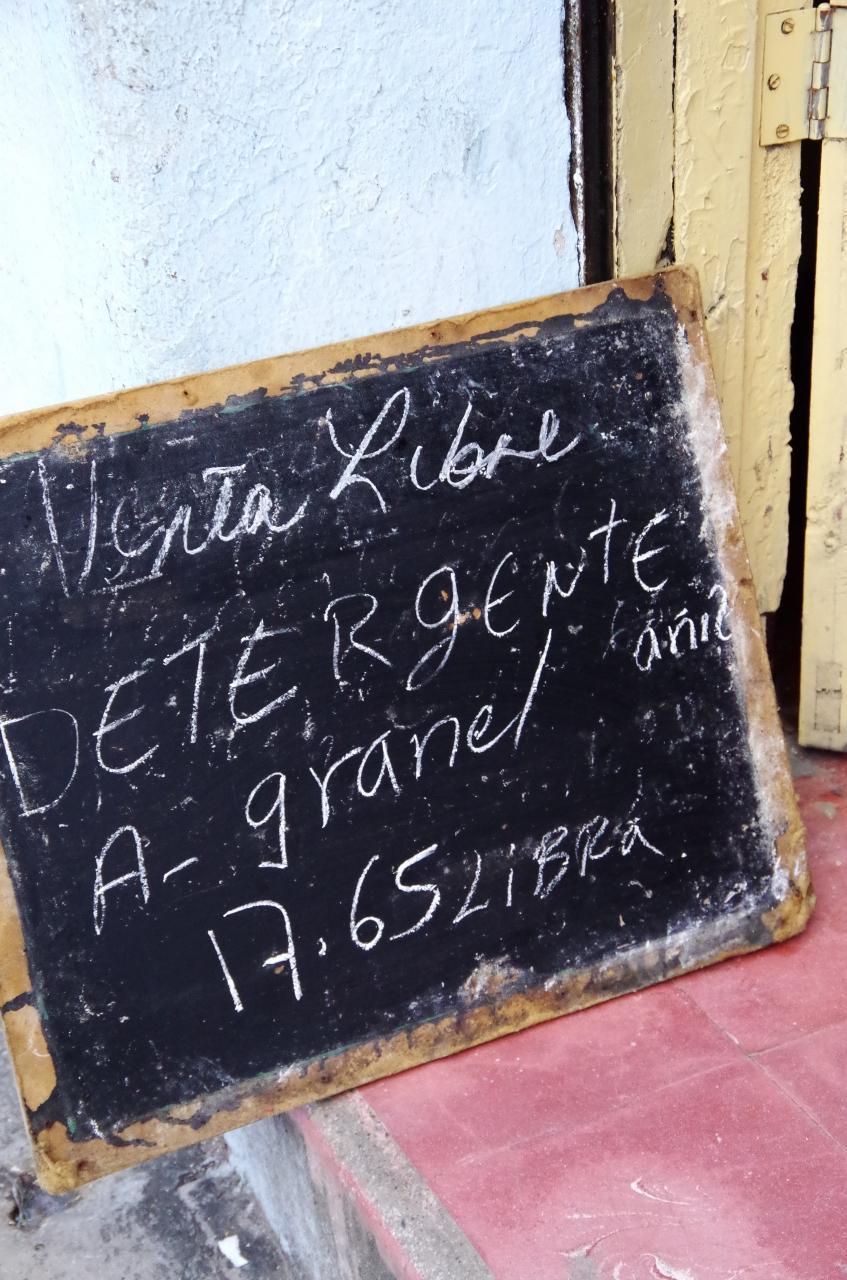 Venta Libre
DETERgENTE
añil
A- granel
17.65 LiBRa